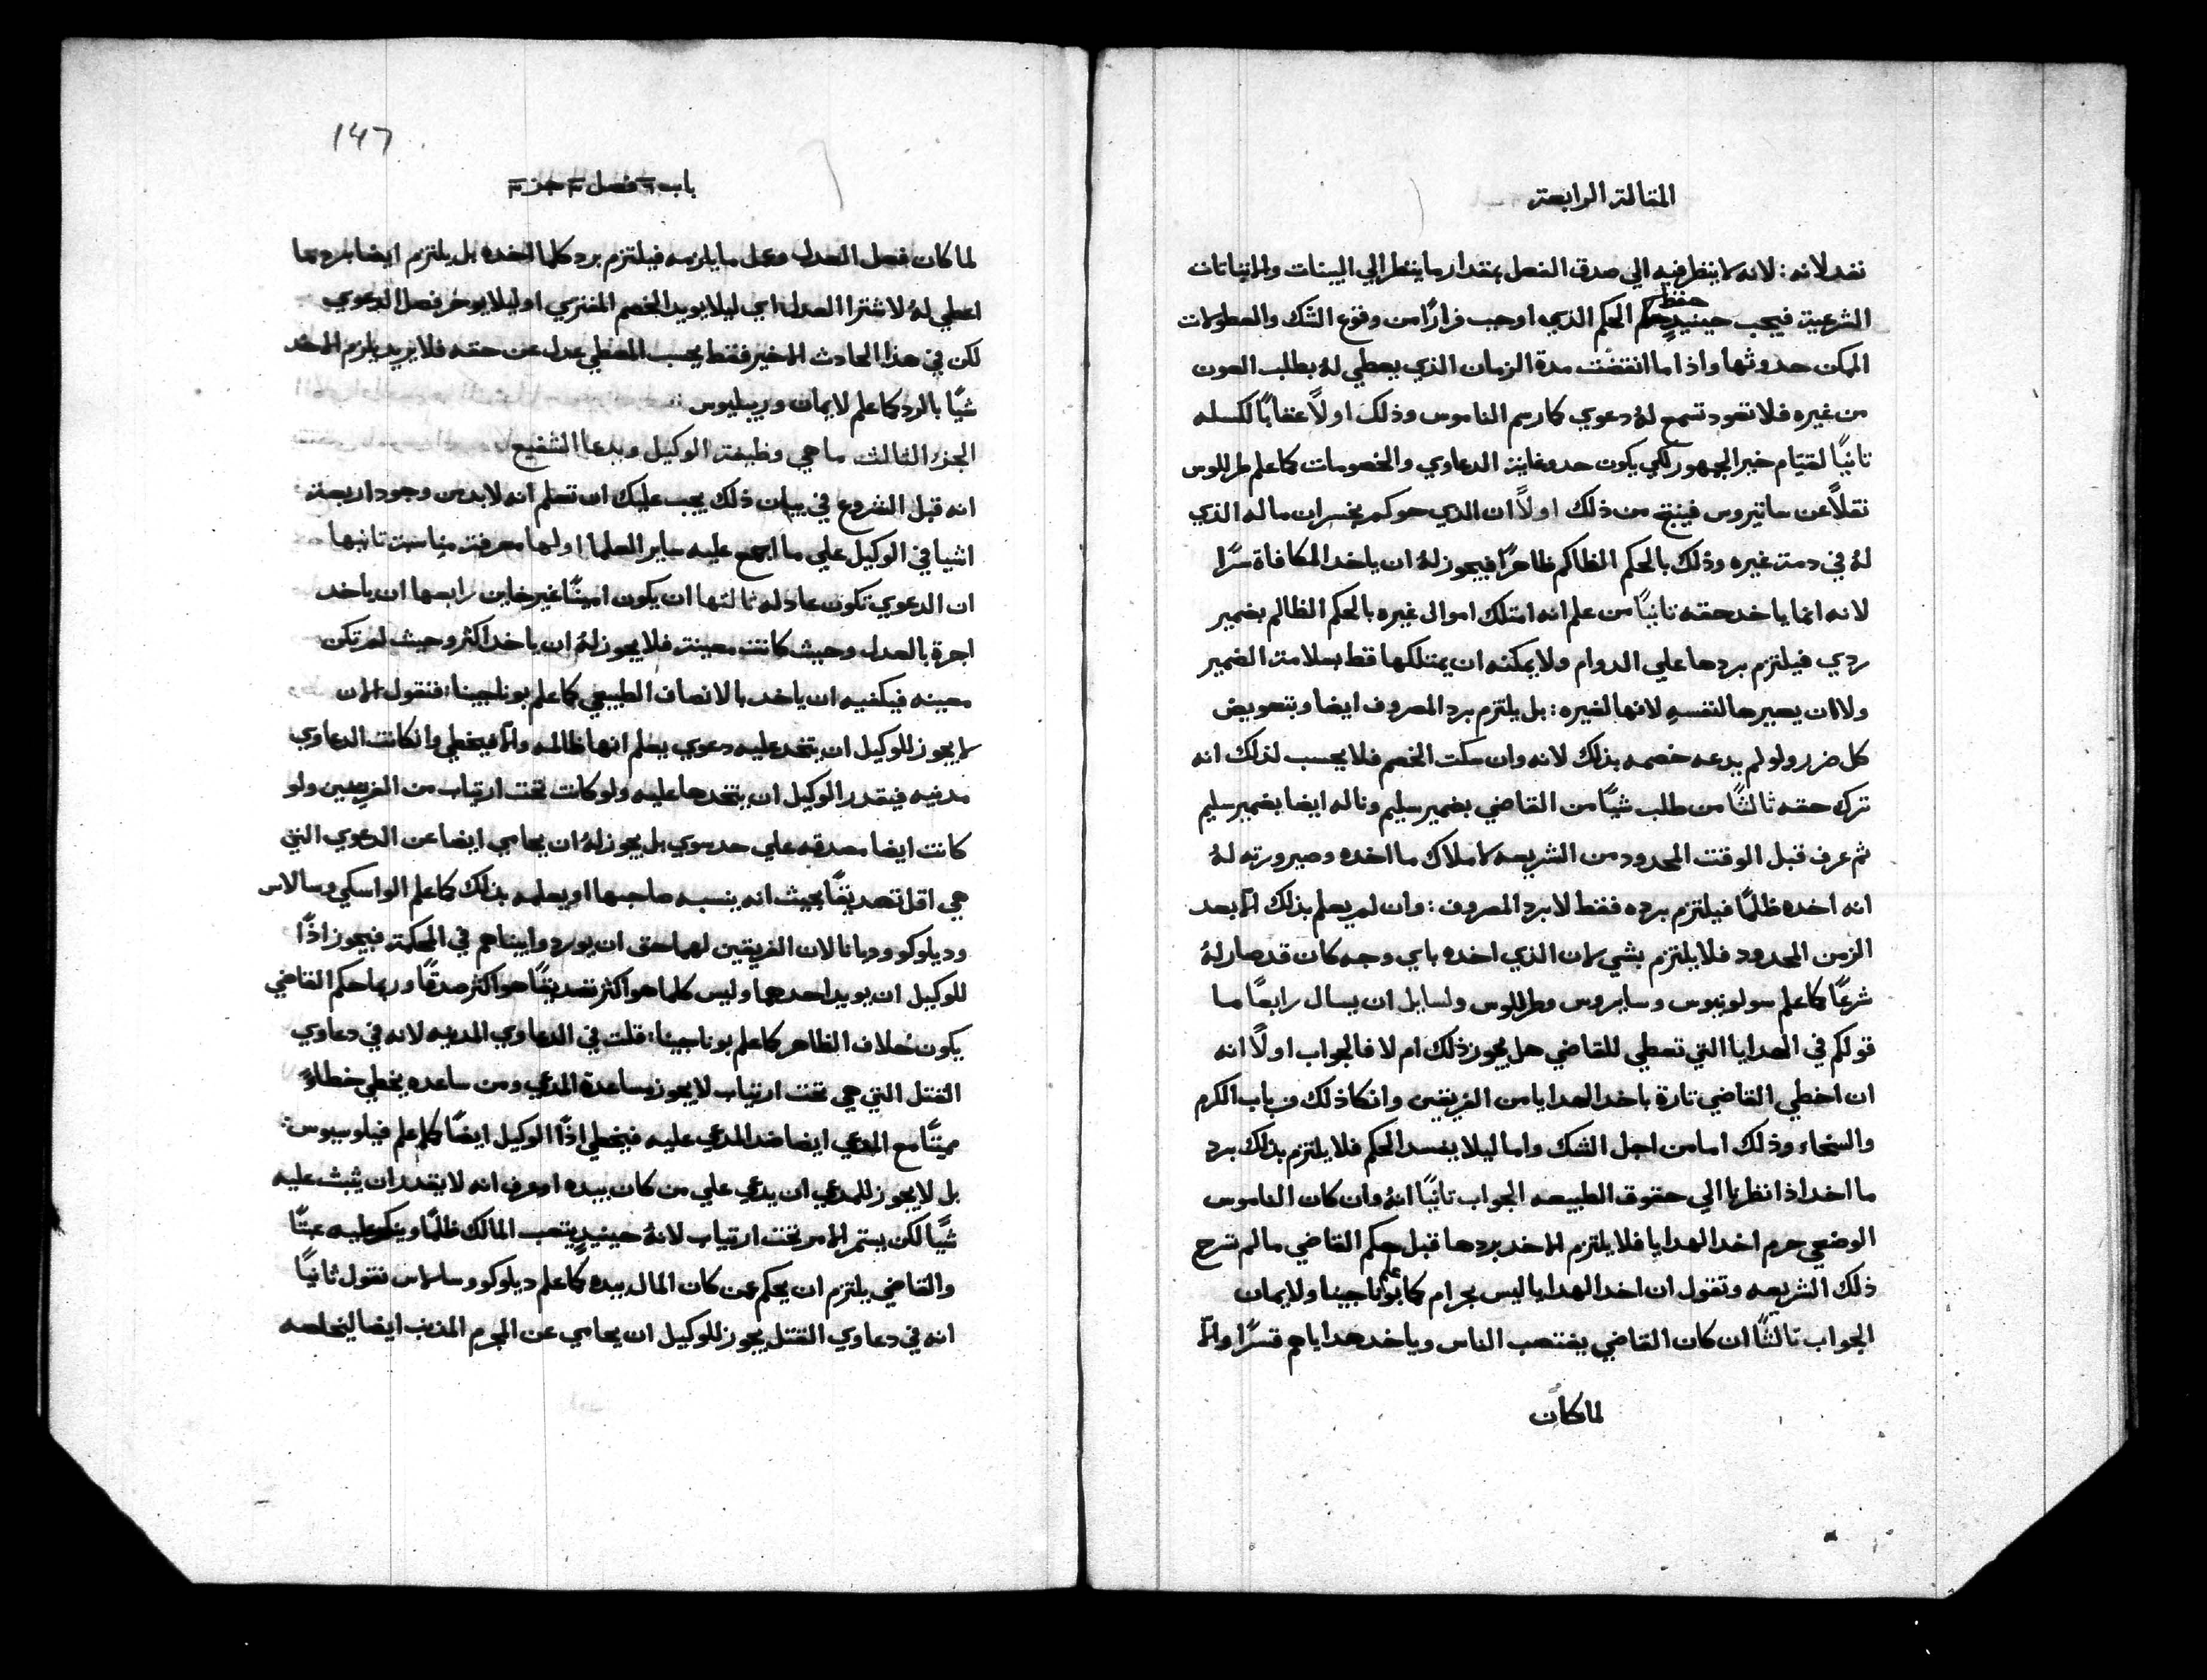 المقالة الرابعة
نفد لانه : لانه لا ينظر فيه الي صدق الفعل بمقدار ما ينظر الي البينات والاثباتات
الشرعية فيجب حينيدٍ حفظ الحكم الذي اوجب فرارًا من وقوع الشك والمطولات
الممكن حدوثها واذا ما انقضت مدة الزمان الذي يعطي لهُ بطلب العون
من غيره فلا تعود تسمع لهُ دعوي كما رسم الناموس وذلك اولاً عقابًا لكسله
ثانيًا لقيام خير الجمهور لكي يكون حد وغاية الدعاوي والخصومات كما علم مرللوس
نقلاً عن سانتيروس فينتج من ذلك اولاً ان الذي حوكم بخسران ماله الذي
لهُ في دمة غيره وذلك بالحكم الظالم ظاهرًا فيجوز لهُ ان ياخد المكافاة سرًا
لانه انما ياخد حقه ثانيًا من علم انه امتلك اموال غيره بالحكم الظالم بضمير
ردي فيلتزم بردها علي الدوام ولا يمكنه ان يمتلكها قط بسلامة الضمير
ولا ان يصيرها لنفسهِ لانها لغيره : بل يلتزم برد المصروف ايضا وبتعويض
كل ضرر ولو لم يدعه خصمه بذلك لانه وان سكت الخصم فلا يحسب لذلك انه
ترك حقه ثالثًا من طلب شيًا من القاضي بضمير سليم وناله ايضا بضمير سليم
ثم عرف قبل الوقت المحدود من الشريعه لاملاك ما اخده وصيرورته لهُ
انه اخده ظلمًا فيلتزم برده فقط لا برد المصروف : وان لم يعلم بذلك الا بعد
الزمن المحدود فلا يلتزم بشي لان الذي اخده باي وجه كان قد صار لهُ
شرعًا كما علم سولونيوس وسايروس ومرللوس ولسايل ان يسال رابعًا ما
قولكم في الهدايا التي تعطي للقاضي هل يجوز ذلك ام لا فالجواب اولاً انه
ان اخطي القاضي تارة باخد الهدايا من الفريقين وانكا ذلك من باب الكرم
والسخاء وذلك اما من اجل الشك واما ليلا يفسد الحكم فلا يلتزم بذلك برد
ما اخد اذا نظرنا الي حقوق الطبيعه الجواب ثانيًا انهُ وان كان الناموس
الوضعي حرم اخد الهدايا فلا يلتزم الاخد بردها قبل حكم القاضي ما لم تشرح
ذلك الشريعه وتقول ان اخد الهدايا ليس بحرام كما علم بوناجينا ولايمان
الجواب ثالثًا ان كان القاضي يغتصب الناس وياخد هداياهم قسرًا والّا
لما كان
١٤٦
باب ٦ فصل ٣ جز ٣
لما كان فصل العدل وعمل ما يلزمه فيلتزم برد كلما اخده بل يلتزم ايضا برد ما
اعطي لهُ لاشترا العدل اي ليلا يويد الخصم المفتري او ليلا يوخر فصل الدعوي
لكن في هذا الحادث الاخير فقط يحسب المعطي عدل عن حقه فلا يريد يلزم الاخد
شيًا بالرد كما علم لايمان وريبليوس
الجزء الثالث ما هي وظيفة الوكيل ويدعا الشفيع
انه قبل الشروع في بيان ذلك يجب عليك ان تعلم انه لا بد من وجود اربعة
اشيا في الوكيل علي ما اجمع عليه ساير العلما اولها معرفة مناسبة ثانيها
ان الدعوي تكون عادله ثالثها ان يكون امينًا غير خاين رابعها ان ياخد
اجرة بالعدل وحيث كانت معينة فلا يجوز لهُ ان ياخد اكثر وحيث لم تكن
معينه فيكفيه ان ياخد بالانصاف الطبيعي كما علم بوناجينا : فنقول الان
لا يجوز للوكيل ان يتخد عليه دعوي يعلم انها ظالمه والّا فيخطي وانكانت الدعاوي
مدنيه فيقدر الوكيل ان يتخدها عليه ولو كانت تحت ارتياب من الفريقين ولو
كانت ايضا مصدقه علي حد سوي بل يجوز لهُ ان يحامي ايضا عن الدعوي التي
هي اقل تصديقًا بحيث انه ينسبه صاحبها او يعلمه بذلك كما علم الواسكي وسالاس
وديلوكو وديانا لان الفريقين لهما حق ان يوردوا بيناهم في المحكمة فيجوز اذًا
للوكيل ان يويد احدهما وليس كلما هو اكثر تصديقًا هو اكثر صدقًا وربما حكم القاضي
يكون خلاف الظاهر كما علم بوناجينا : قلت في الدعاوي المدنيه لانه في دعاوي
القتل التي هي تحت ارتياب لا يجوز مساعدة المدعي ومن ساعده يخطي خطاءً
مميتًا مع المدعي ايضا ضد المدعي عليه فيخطي اذًا الوكيل ايضًا كما علم فيلوسيوس :
بل لا يجوز للمدعي ان يدعي علي من كان بيده اذ عرف انه لا يقدر ان يثبت عليه
شيًا لكن يستمر الامر تحت ارتياب لانهُ حينيدٍ يتعب المالك ظلمًا وينكر عليه عبثًا
والقاضي يلتزم ان يحكم عن كان المال بيده كما علم ديلوكو وسالاس نقول ثانيًا
انه في دعاوي القتل يجوز للوكيل ان يحامي عن المجرم المذنب ايضا ليخلصه